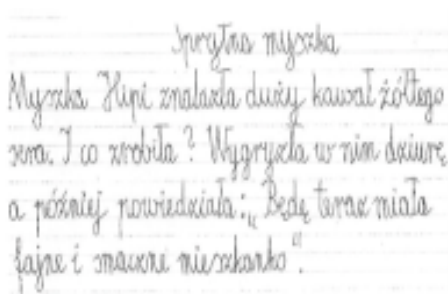 Sprytna myszka
Myszka Hipi znalazła duży kawał żółtego
sera. I co zrobiła? Wygryzła w nim dziurę,
a później powiedziała: „Będę teraz miała
fajne i smaczne mieszkanko".